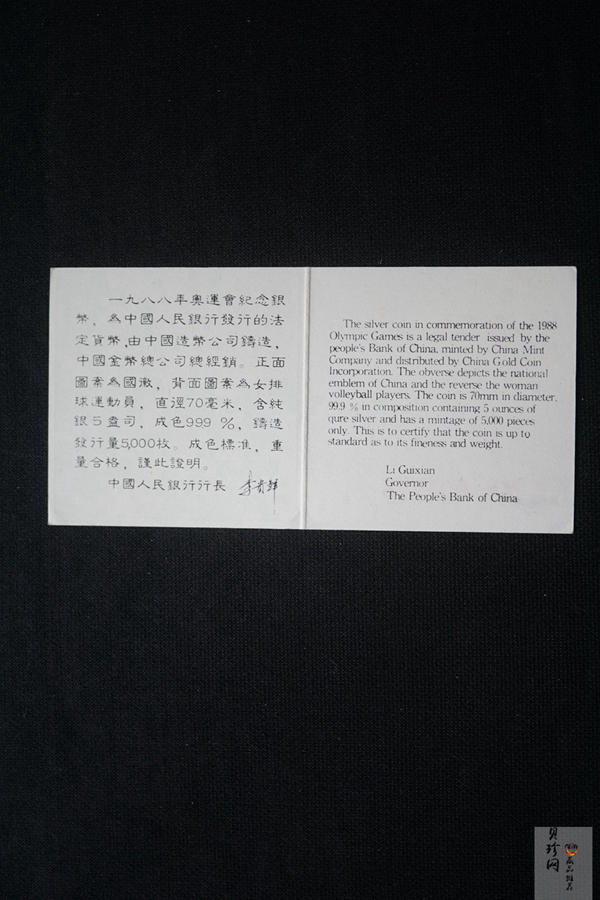 一九八八年奧運會紀念銀
幣，為中國人民銀行發行的法
定貨幣，由中國造幣公司鑄造，
中國金幣總公司總經銷。正面
圖案為國徽，背面圖案為女排
球運動員，直徑70毫米，含純
銀5盎司，成色999 %，鑄造
發行量5,000枚。成色標准，重
量合格，謹此證明。
中國人民銀行行長 李貴鮮
The silver coin in commemoration of the 1988
Olympic Games is a legal tender issued by the
people's Bank of China, minted by China Mint
Company and distributed by China Gold Coin
Incorporation. The obverse depicts the national
emblem of China and the reverse the woman
volleyball players. The coin is 70mm in diameter,
99.9 % in composition containing 5 ounces of
qure silver and has a mintage of 5,000 pieces
only. This is to certify that the coin is up to
standard as to its fineness and weight.
Li Guixian
Governor
The People's Bank of China
貝珍网